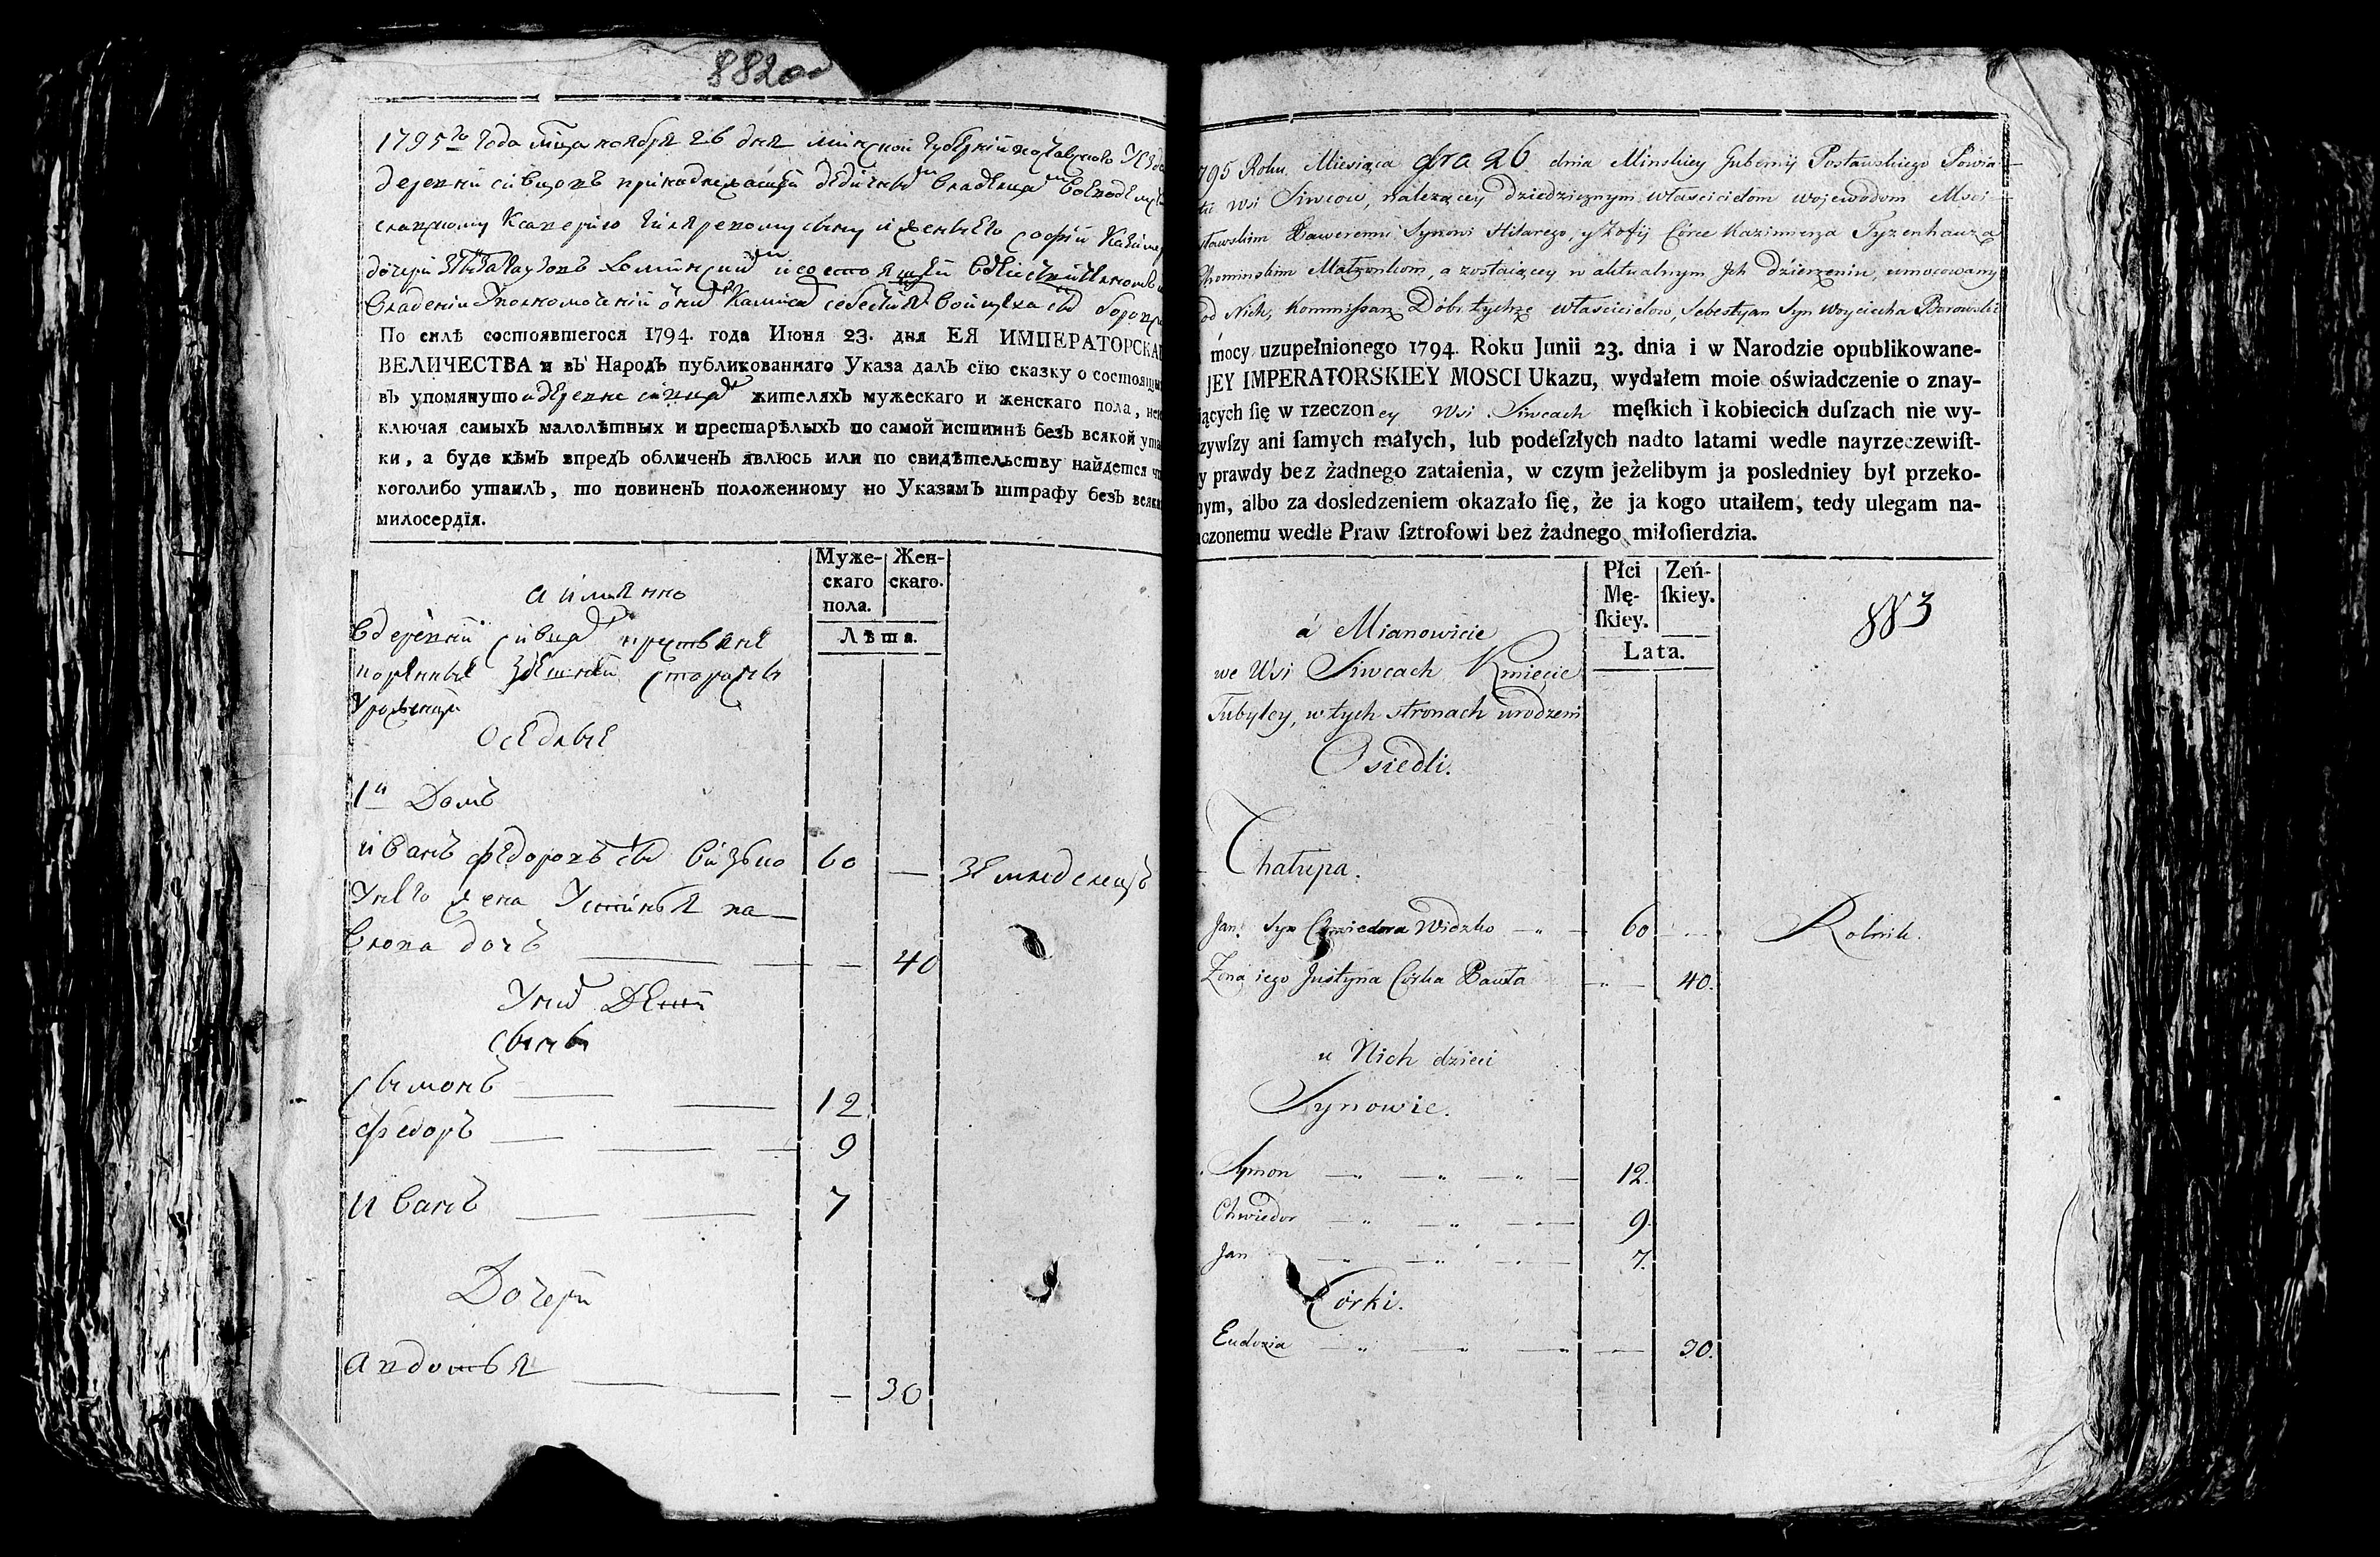 882об
1795го года мца ноября 26 дня минской губернии поставского
деревни сивцовъ принадлежащей
Ксаверию Гиляревому сыну и жены его софии
дочери
владении
По силѣ состоявшегося 1794. года Июня 23. дня ЕЯ ИМПЕРАТОРСКА
ВЕЛИЧЕСТВА и въ Народъ публикованнаго Указа далъ сїю сказку о состоящи
въ упомянуто и деревне сивцах жителяхъ мужескаго и женскаго пола, неи
ключая самыхъ малолѣтныхъ и престарѣлыхъ по самой истиннѣ безъ всякой ута
ки, а буде кѣмъ впредъ обличенъ явлюсь или по свидѣтельству найдется чт
коголибо утаилъ, то повиненъ положенному по Указамъ штрафу безъ всяка
милосердїя.
Муже-скаго пола. Жен-скаго.
Лѣта.
а имянно
в деревни сивцах крестьяне
коренные здешней стороны
уроженцы
Оседлые
1й Домъ
иванъ федоровъ снъ видзько 60 — земледелецъ
у него жена Устинья па-
влова дочъ 40
у них Дети
сыны
сымонъ 12
федоръ 9
иванъ 7
Дочери
авдотья — 30
795 Roku Miesiąca 9bra 26 dnia Minskiey Gubernij Postawskiego Powia-
tu Wsi Siwcow, należącey dziedzicznym właścicielom wojewodom Msci-
sławskim Xaweremu Synowi Hilarego, y Zofij Córce Kazimierza Tyzenhauza
Chominskim Małżonkom, a zostaiącey w aktualnym Jch dzierżeniu, umocowany
od Nich, Kommissarz Dóbr tychże właścicielow, Sebestyan Syn Woyciecha Borowski
mocy uzupełnionego 1794. Roku Junii 23. dnia i w Narodzie opublikowane-
JEY IMPERATORSKIEY MOSCI Ukazu, wydałem moie oświadczenie o znay-
iących ſię w rzeczoney Wsi Siwcach męſkich i kobiecich duſzach nie wy-
zywſzy ani ſamych małych, lub podeſzłych nadto latami wedle nayrzeczewiſt-
y prawdy bez żadnego zataienia, w czym jeżelibym ja posledniey był przeko-
nym, albo za dosledzeniem okazało ſię, że ja kogo utaiłem, tedy ulegam na-
czonemu wedle Praw ſztrofowi bez żadnego miłoſierdzia.
Płci Mę-ſkiey. Zeń-ſkiey.
Lata.
883
á Mianowicie
we Wsi Siwcach Kmiecie
Tubylcy, w tych stronach urodzeni
Osiedli.
Chałupa.
Jan Syn Chwiedora Widzko 60 Rolnik.
Zona iego Justyna Córka Pawła 40.
u Nich dzieci
Synowie.
Symon 12.
Chwiedor 9.
Jan 7.
Córki.
Eudoxia 30.